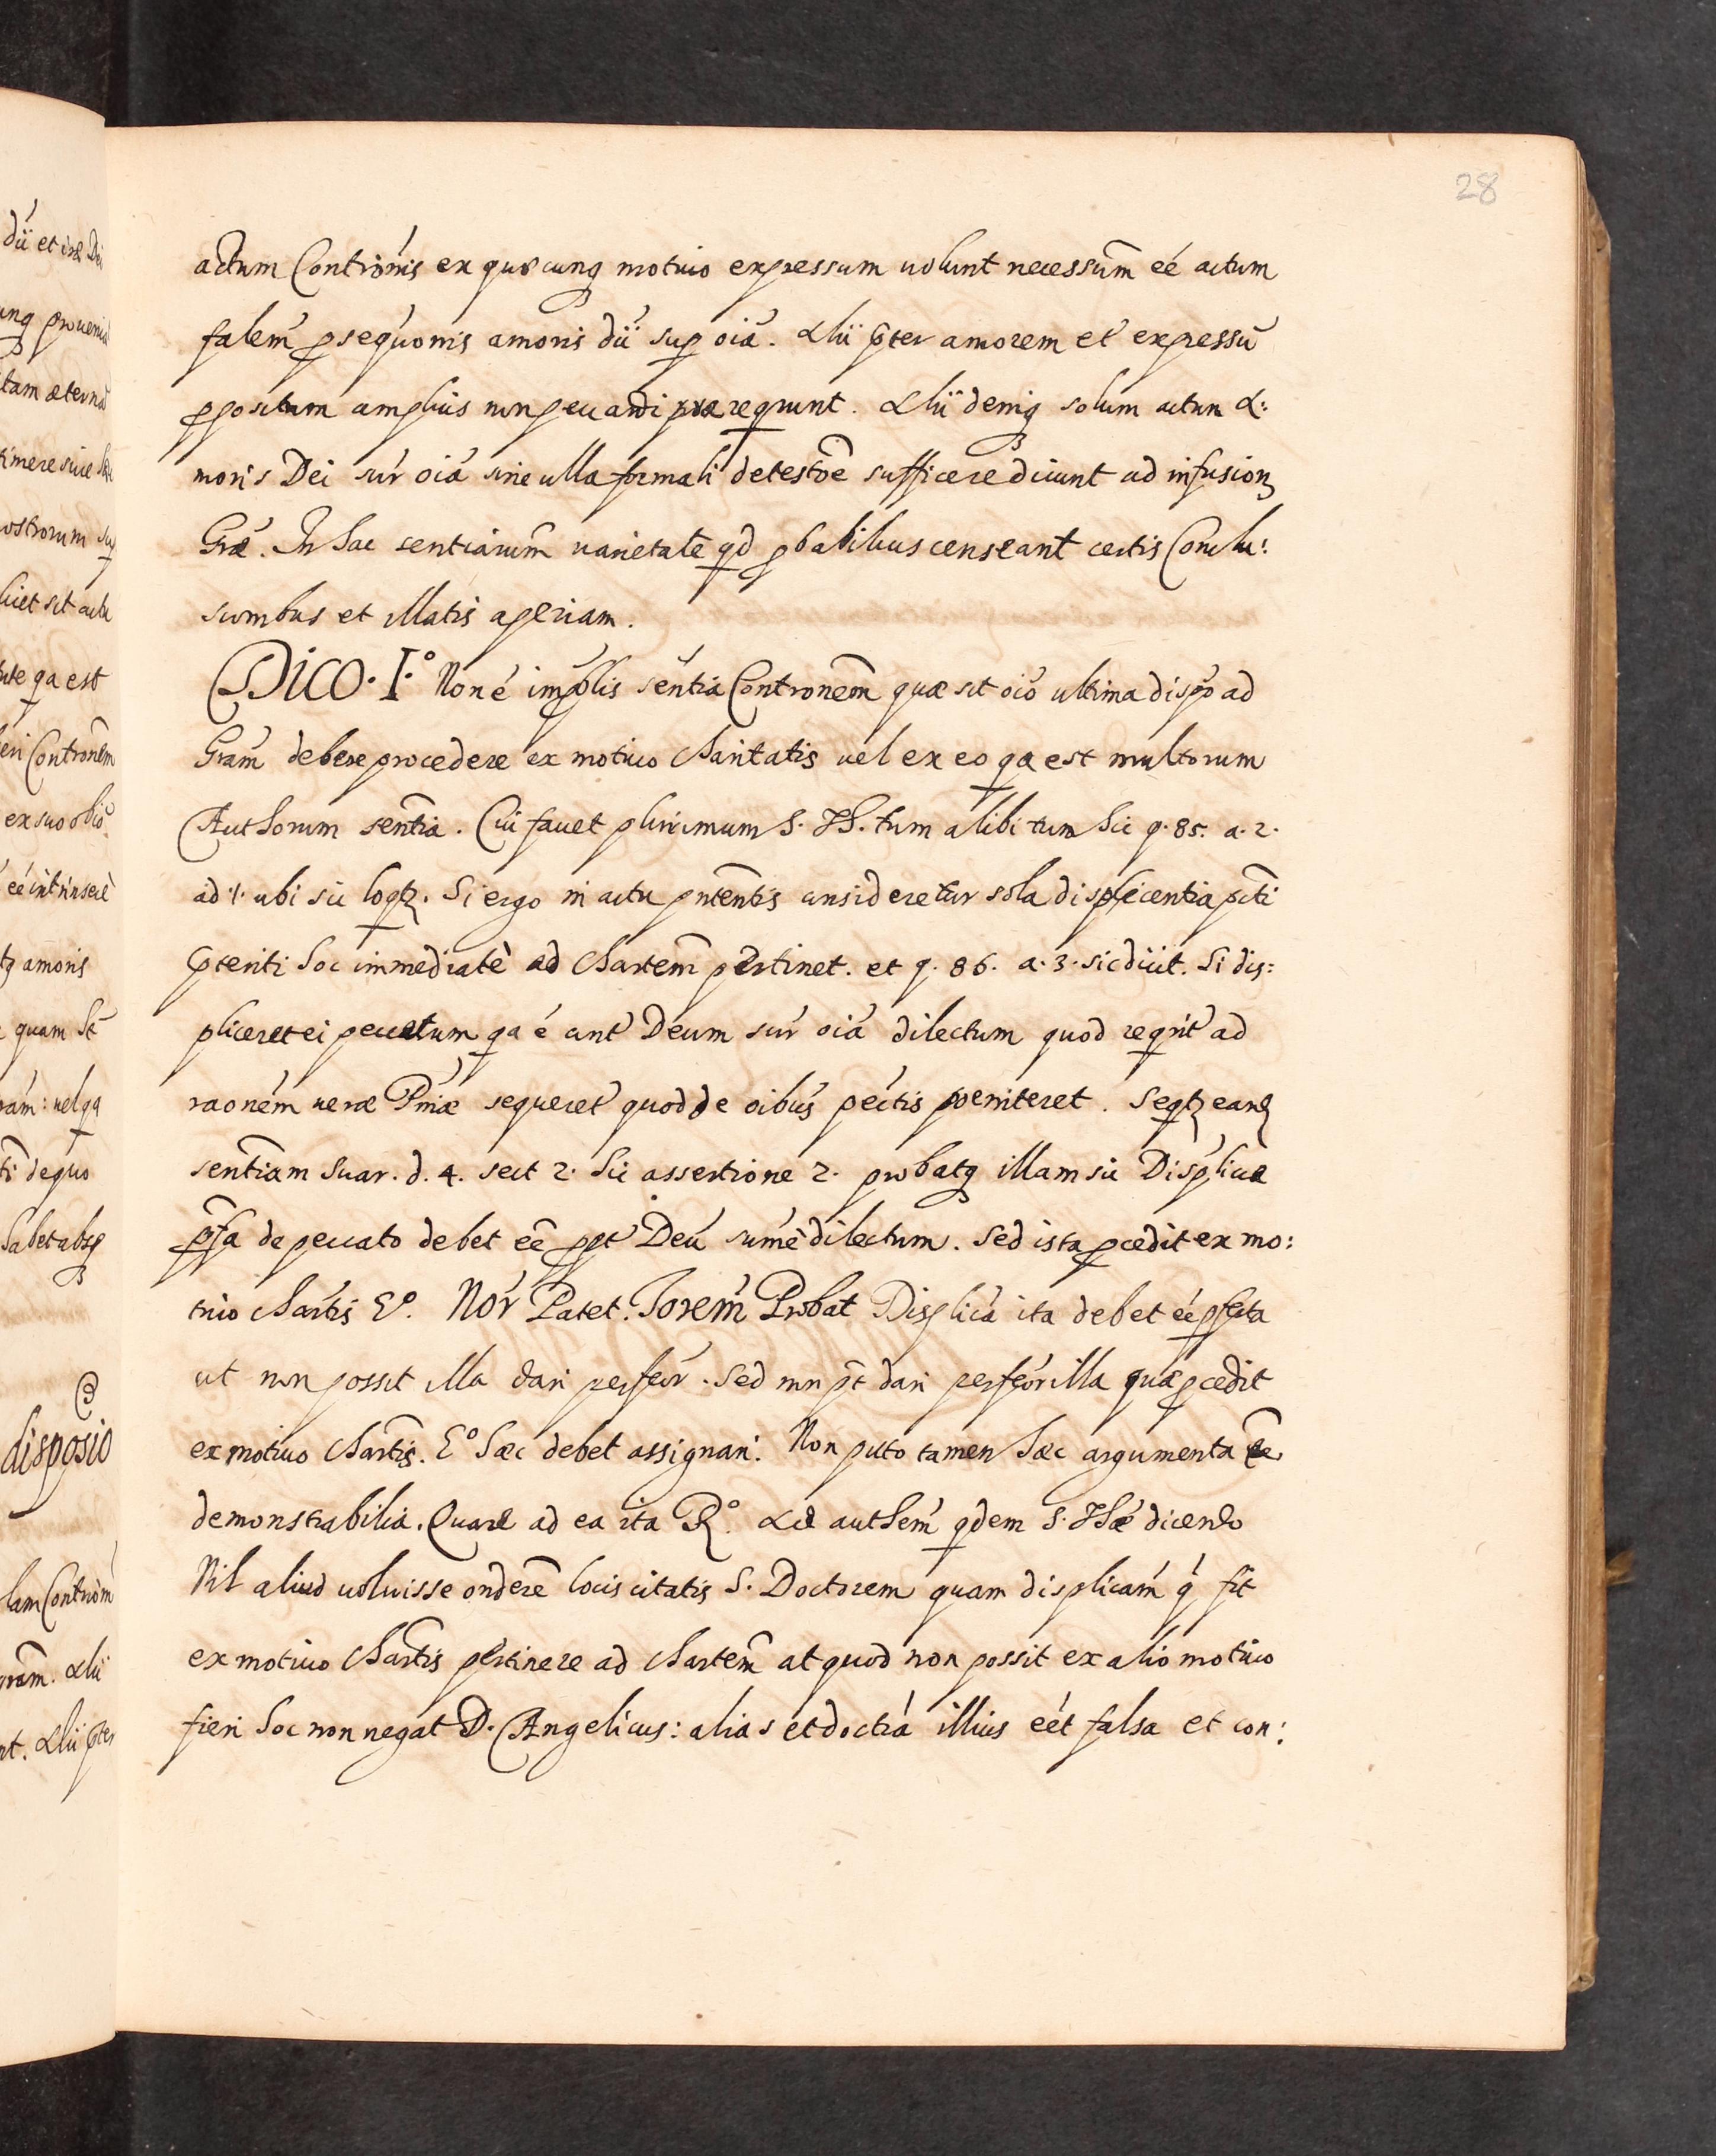 28
actum Contriónis ex quocunq motiuo expressum uolunt necessũm eé actum
falem̃ psequonis amoris dii sup oia. Alii pter amorem et expressũ
ppositum amplius non peccandi præ reqrunt. Alii deniq solum actum A:
moris Dei sur oia sine ulla formali detestoẽ sufficere dicunt ad infusionẽ
Græ. In hac sentiarum uarietate qd pbabilius censeant certis Conclu:
sionibus et illatis aperiam.
DICO. I.º Non é improblis séntia Contrionem̃ quæ sit oio ultima dispõ ad
Gram̃ debere procedere ex motiuo charitatis uel ex eo qa est multorum
Authorum sentĩa. Cui fauet plurimum S. Th. tum alibi tum hic q. 85. a. 2.
ad 1. ubi sic loqtr. Si ergo in actu pntentis consideretur sola displicentia pcti
pteriti hoc immediatè ad chartem̃ pertinet. et q. 86. a. 3. sic dicit. Si dis:
pliceret ei peccatum qa é cont Deum sur oia dilectum quod reqrit ad
raoném ueræ Pniæ sequeret quod de oibus pectis poeniteret. Seqtr eand
sentĩam Suar. d. 4. sect 2. hic assertione 2. probatq illam sic Displicá
pfta de peccato debet eẽ ppt Deũ sumé dilectum. Sed ista pcedit ex mo:
tiuo chartis Eº. Mór Patet. Iorem̃ Probat Displicá ita debet eé pfecta
ut non possit illa dari perfeór. Sed non pt dari perfeór illa quæ pcedit
ex motiuo chartis. Eº hæc debet assignari. Non puto tamen hæc argumenta eẽ
demonstrabilia. Quare ad ea ita Rº. Ad authem̃ qdem S. Thæ dicendo
Nil aliud uoluisse onderẽ locis citatis S. Doctorem quam displicam̃ q fit
ex motiuo chartis pertinere ad chartem̃ at quod non possit ex alio motiuo
fieri hoc non negat D. Angelicus: alias et doctrá illius eét falsa et con: